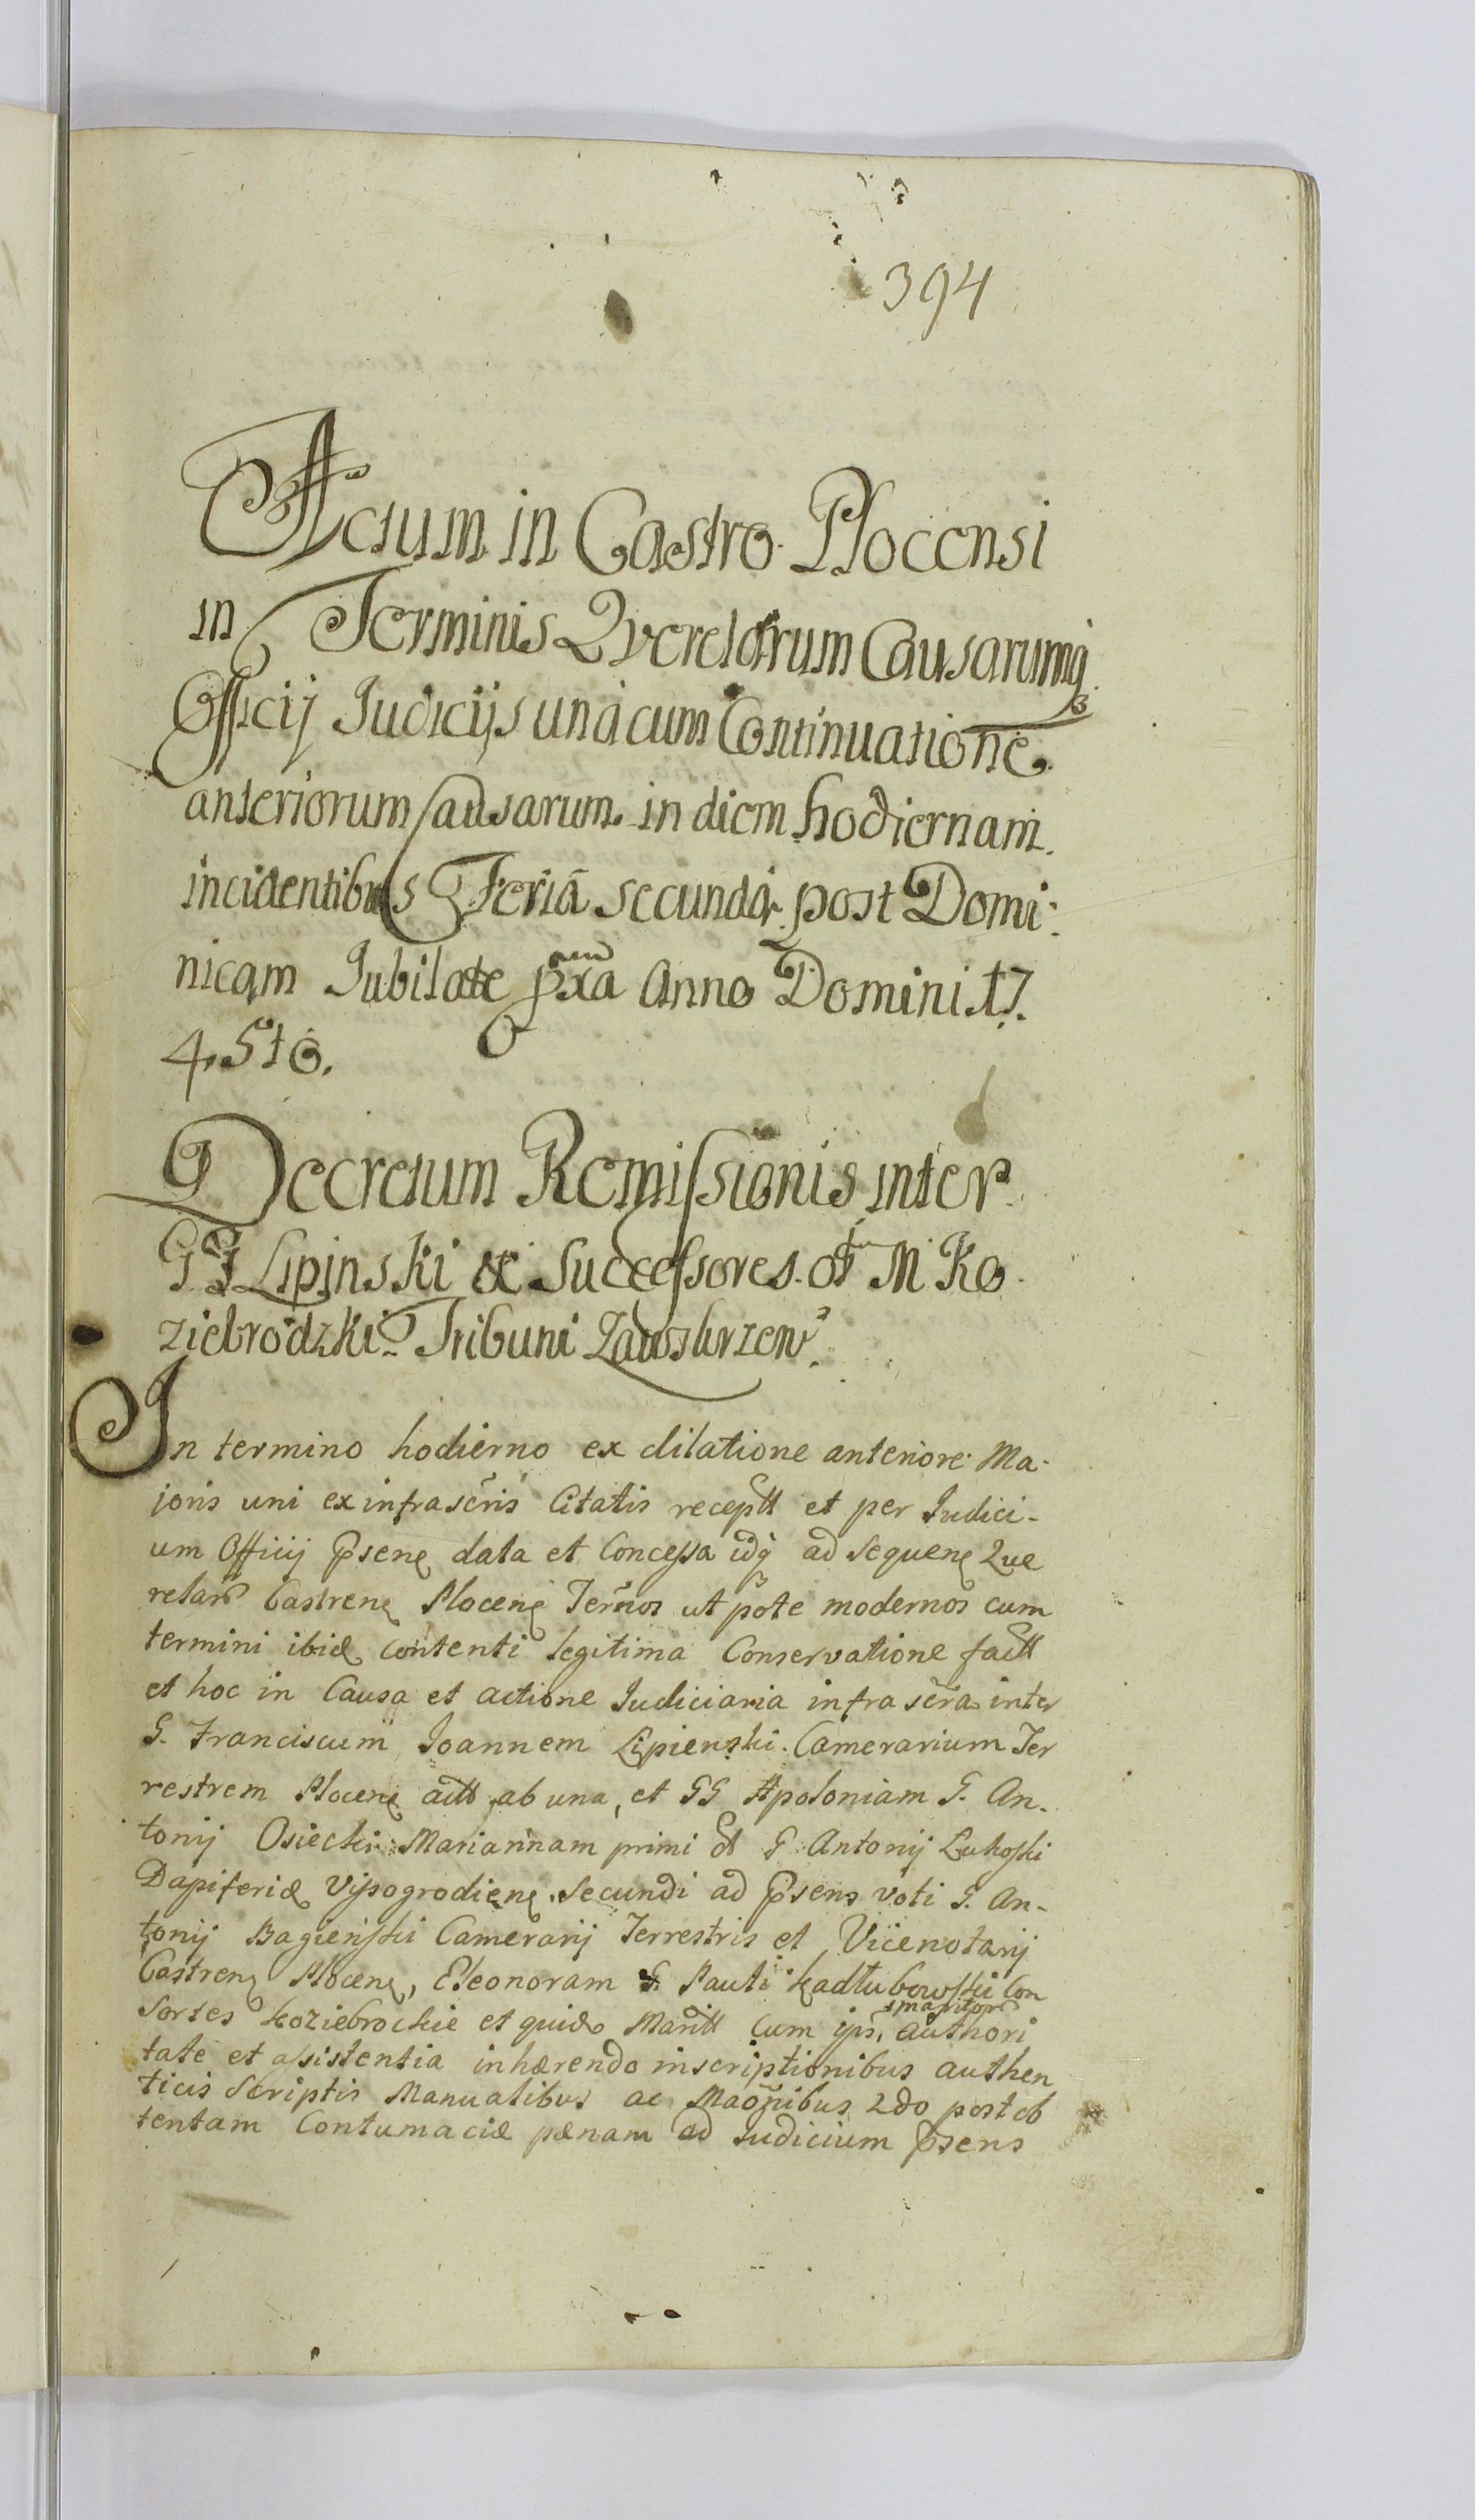 394
Actum in Castro Plocensi
in Terminis Qverelarum Causarumq
Officij Judicijs una cum Continuatione
anteriorum Causarum in diem hodiernam
incidentibus Feria secunda post Domi:
nicam Jubilate pxa Anno Domini 17.
45to.
Decretum Remissionis inter
G J Lipinski et Successores M Ko
ziebrodzki Tribuni Zawskrzen
In termino hodierno ex dilatione anteriore Ma-
joris uni ex infrascris Citatis receptt et per Judici-
um Officij Psens data et Concessa idq ad Sequens Que
relar Castrens Plocens Termos ut pote modernos cum
termini ibid contenti legitima Conservatione factt
et hoc in Causa et actione Judiciaria infra scra inter
G. Franciscum Joannem Lipienski Camerarium Ter
restrem Plocens actt ab una, et GG Apoloniam G. An-
tonij Osiecki Mariannam primi G Antonij Lukoski
Dapiferid Vissogrodiens Secundi ad Psens voti G. An-
tonij Bagienski Camerarij Terrestris et Vicenotarij
Castrens Plocens, Eleonoram G Pauli Kadlubowski Con
smaritor
Sortes Koziebrockie et quid Maritt cum ips, authori
tate et assistentia inhærendo inscriptionibus authen
ticis Scriptis Manualibus ac Maonibus 2do post ob
tentam Contumaciæ pænam ad Judicium Psens